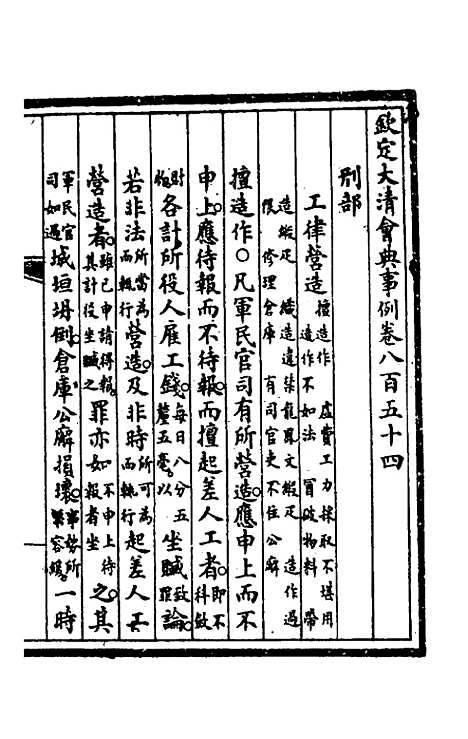 欽定大清會典事例卷八百五十四
刑部
工律營造擅造作 虛費工力採取不堪用 造作不如法 冒破物料 帶
造緞疋 織造違禁龍鳳文緞疋 造作過限 修理倉庫 有司官吏不住公廨
擅造作○凡軍民官司有所營造應申上而不
申上應待報而不待報而擅起差人工者即不科斂
財物各計所役人雇工錢每日八分五釐五毫以坐贓致罪論
若非法所當為而輒行營造及非時所可為而輒行起差人工
營造者雖已申請得報其計役坐贓之罪亦如不申上待報者坐之其
軍民官司如遇城垣坍倒倉庫公廨損壞事勢所繫容緩一時